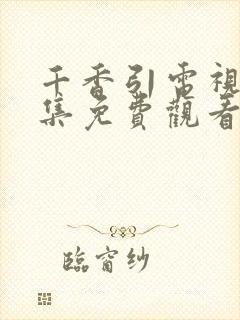 千香引电視
集免費觀看
臨窗紗